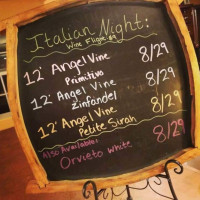 Italian Night:
Wine Flight $9
12' Angel Vine 8/29
Primitivo
12' Angel Vine 8/29
Zinfandel
12' Angel Vine 8/29
Petite Sirah
Also Available: 8/29
Orvieto White